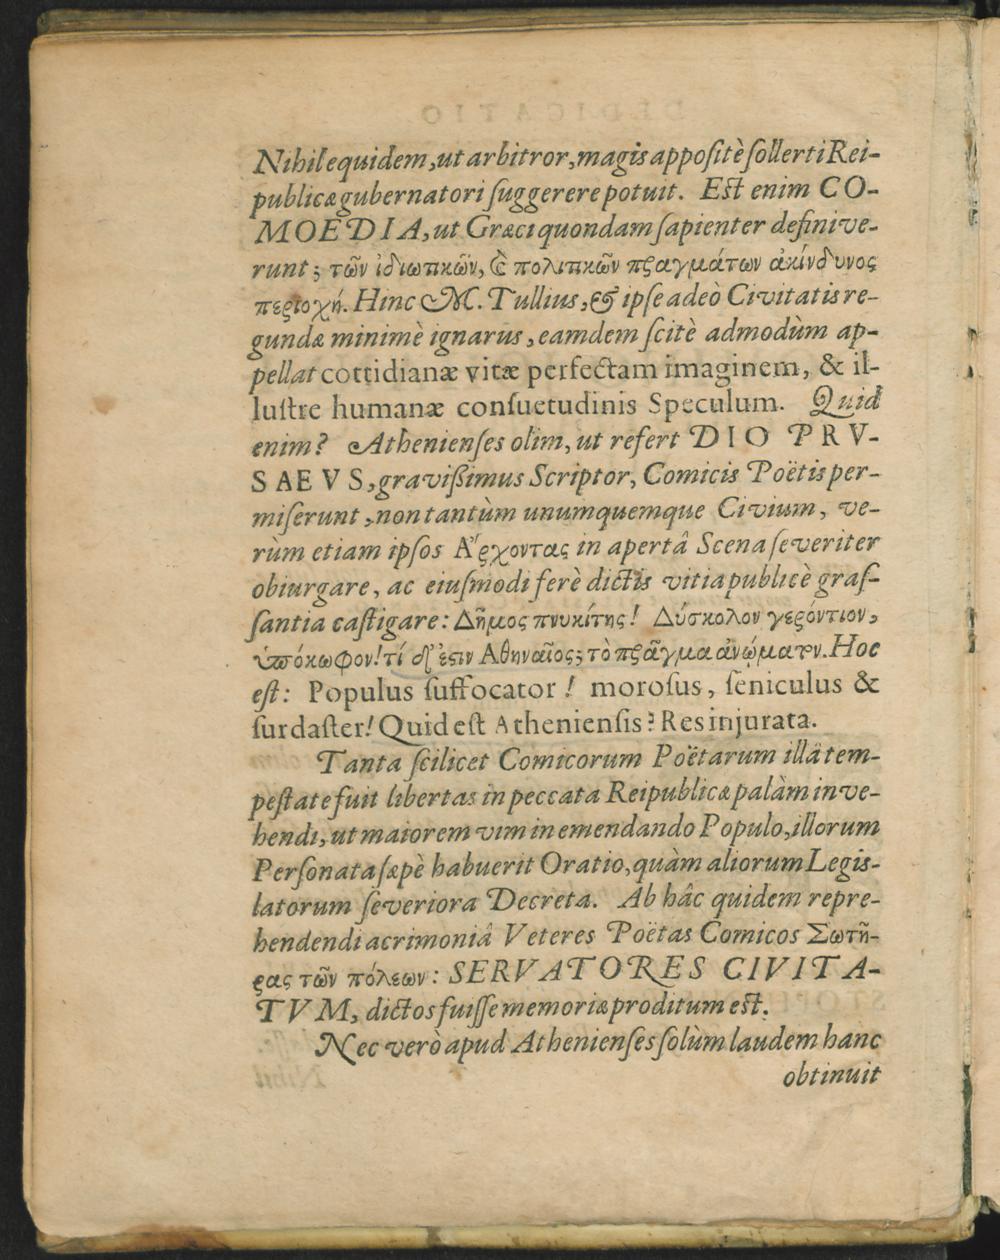 Nihil equidem, ut arbitror, magis appoſitè ſollerti Rei-
publicæ gubernatori ſuggerere potuit. Est enim CO-
MOEDIA, ut Græci quondam ſapienter definive-
runt; τῶν ἰδιωτικῶν, & πολιτικῶν πραγμάτων ἀκίνδυνος
περιοχή. Hinc M. Tullius, & ipſe adeò Civitatis re-
gundæ minimè ignarus, eamdem ſcitè admodùm ap-
pellat cottidianæ vitæ perfectam imaginem, & il-
luſtre humanæ conſuetudinis Speculum. Quid
enim? Athenienſes olim, ut refert DIO PRV-
SAEVS, graviſſimus Scriptor, Comicis Poëtis per-
miſerunt, non tantùm unumquemque Civium, ve-
rùm etiam ipſos Ἄρχοντας in apertâ Scena ſeveriter
obiurgare, ac eiuſmodi ferè dictis vitia publicè graſ-
ſantia caſtigare: Δῆμος πνυκίτης! Δύσκολον γερόντιον,
ὑπόκωφον! τί δ' ἐστιν Ἀθηναῖος; τὸ πρᾶγμα ἀνώματον. Hoc
eſt: Populus ſuffocator! moroſus, ſeniculus &
ſurdaſter! Quid eſt Athenienſis? Res injurata.
Tanta ſcilicet Comicorum Poëtarum illâ tem-
peſtate fuit libertas in peccata Reipublicæ palàm inve-
hendi, ut maiorem vim in emendando Populo, illorum
Perſonata ſæpè habuerit Oratio, quàm aliorum Legiſ-
latorum ſeveriora Decreta. Ab hâc quidem repre-
hendendi acrimoniâ Veteres Poëtas Comicos Σωτῆ-
ρας τῶν πόλεων: SERVATORES CIVITA-
TVM, dictos fuiſſe memoriæ proditum est.
Nec verò apud Athenienſes ſolùm laudem hanc
obtinuit